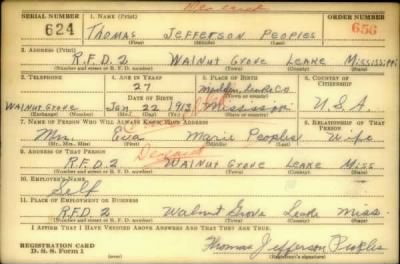 New card
SERIAL NUMBER 1. NAME (Print) ORDER NUMBER
624 THOMAS JEFFERSON PEOPLES 656
(First) (Middle) (Last)
2. ADDRESS (Print)
R.F.D. 2 WALNUT GROVE LEAKE MISSISSIPPI
(Number and street or R. F. D. number) (Town) (County) (State)
3. TELEPHONE 4. AGE IN YEARS 5. PLACE OF BIRTH 6. COUNTRY OF CITIZENSHIP
27 Leake Co.
DATE OF BIRTH
WALNUT GROVE JAN 22 1913 MISSISSIPPI U.S.A.
7. NAME OF PERSON WHO WILL ALWAYS KNOW YOUR ADDRESS 8. RELATIONSHIP OF THAT PERSON
Mrs. Eva Marie Peoples Wife
(Mr., Mrs., Miss) (First) (Middle) (Last)
9. ADDRESS OF THAT PERSON
R.F.D. 2 WALNUT GROVE LEAKE MISS
(Number and street or R. F. D. number) (Town) (County) (State)
10. EMPLOYER'S NAME
Self
11. PLACE OF EMPLOYMENT OR BUSINESS
R.F.D. 2 Walnut Grove Leake Miss.
(Number and street or R. F. D. number) (Town) (County) (State)
I AFFIRM THAT I HAVE VERIFIED ABOVE ANSWERS AND THAT THEY ARE TRUE.
REGISTRATION CARD
D. S. S. Form 1 Thomas Jefferson Peoples
(Registrant's signature)